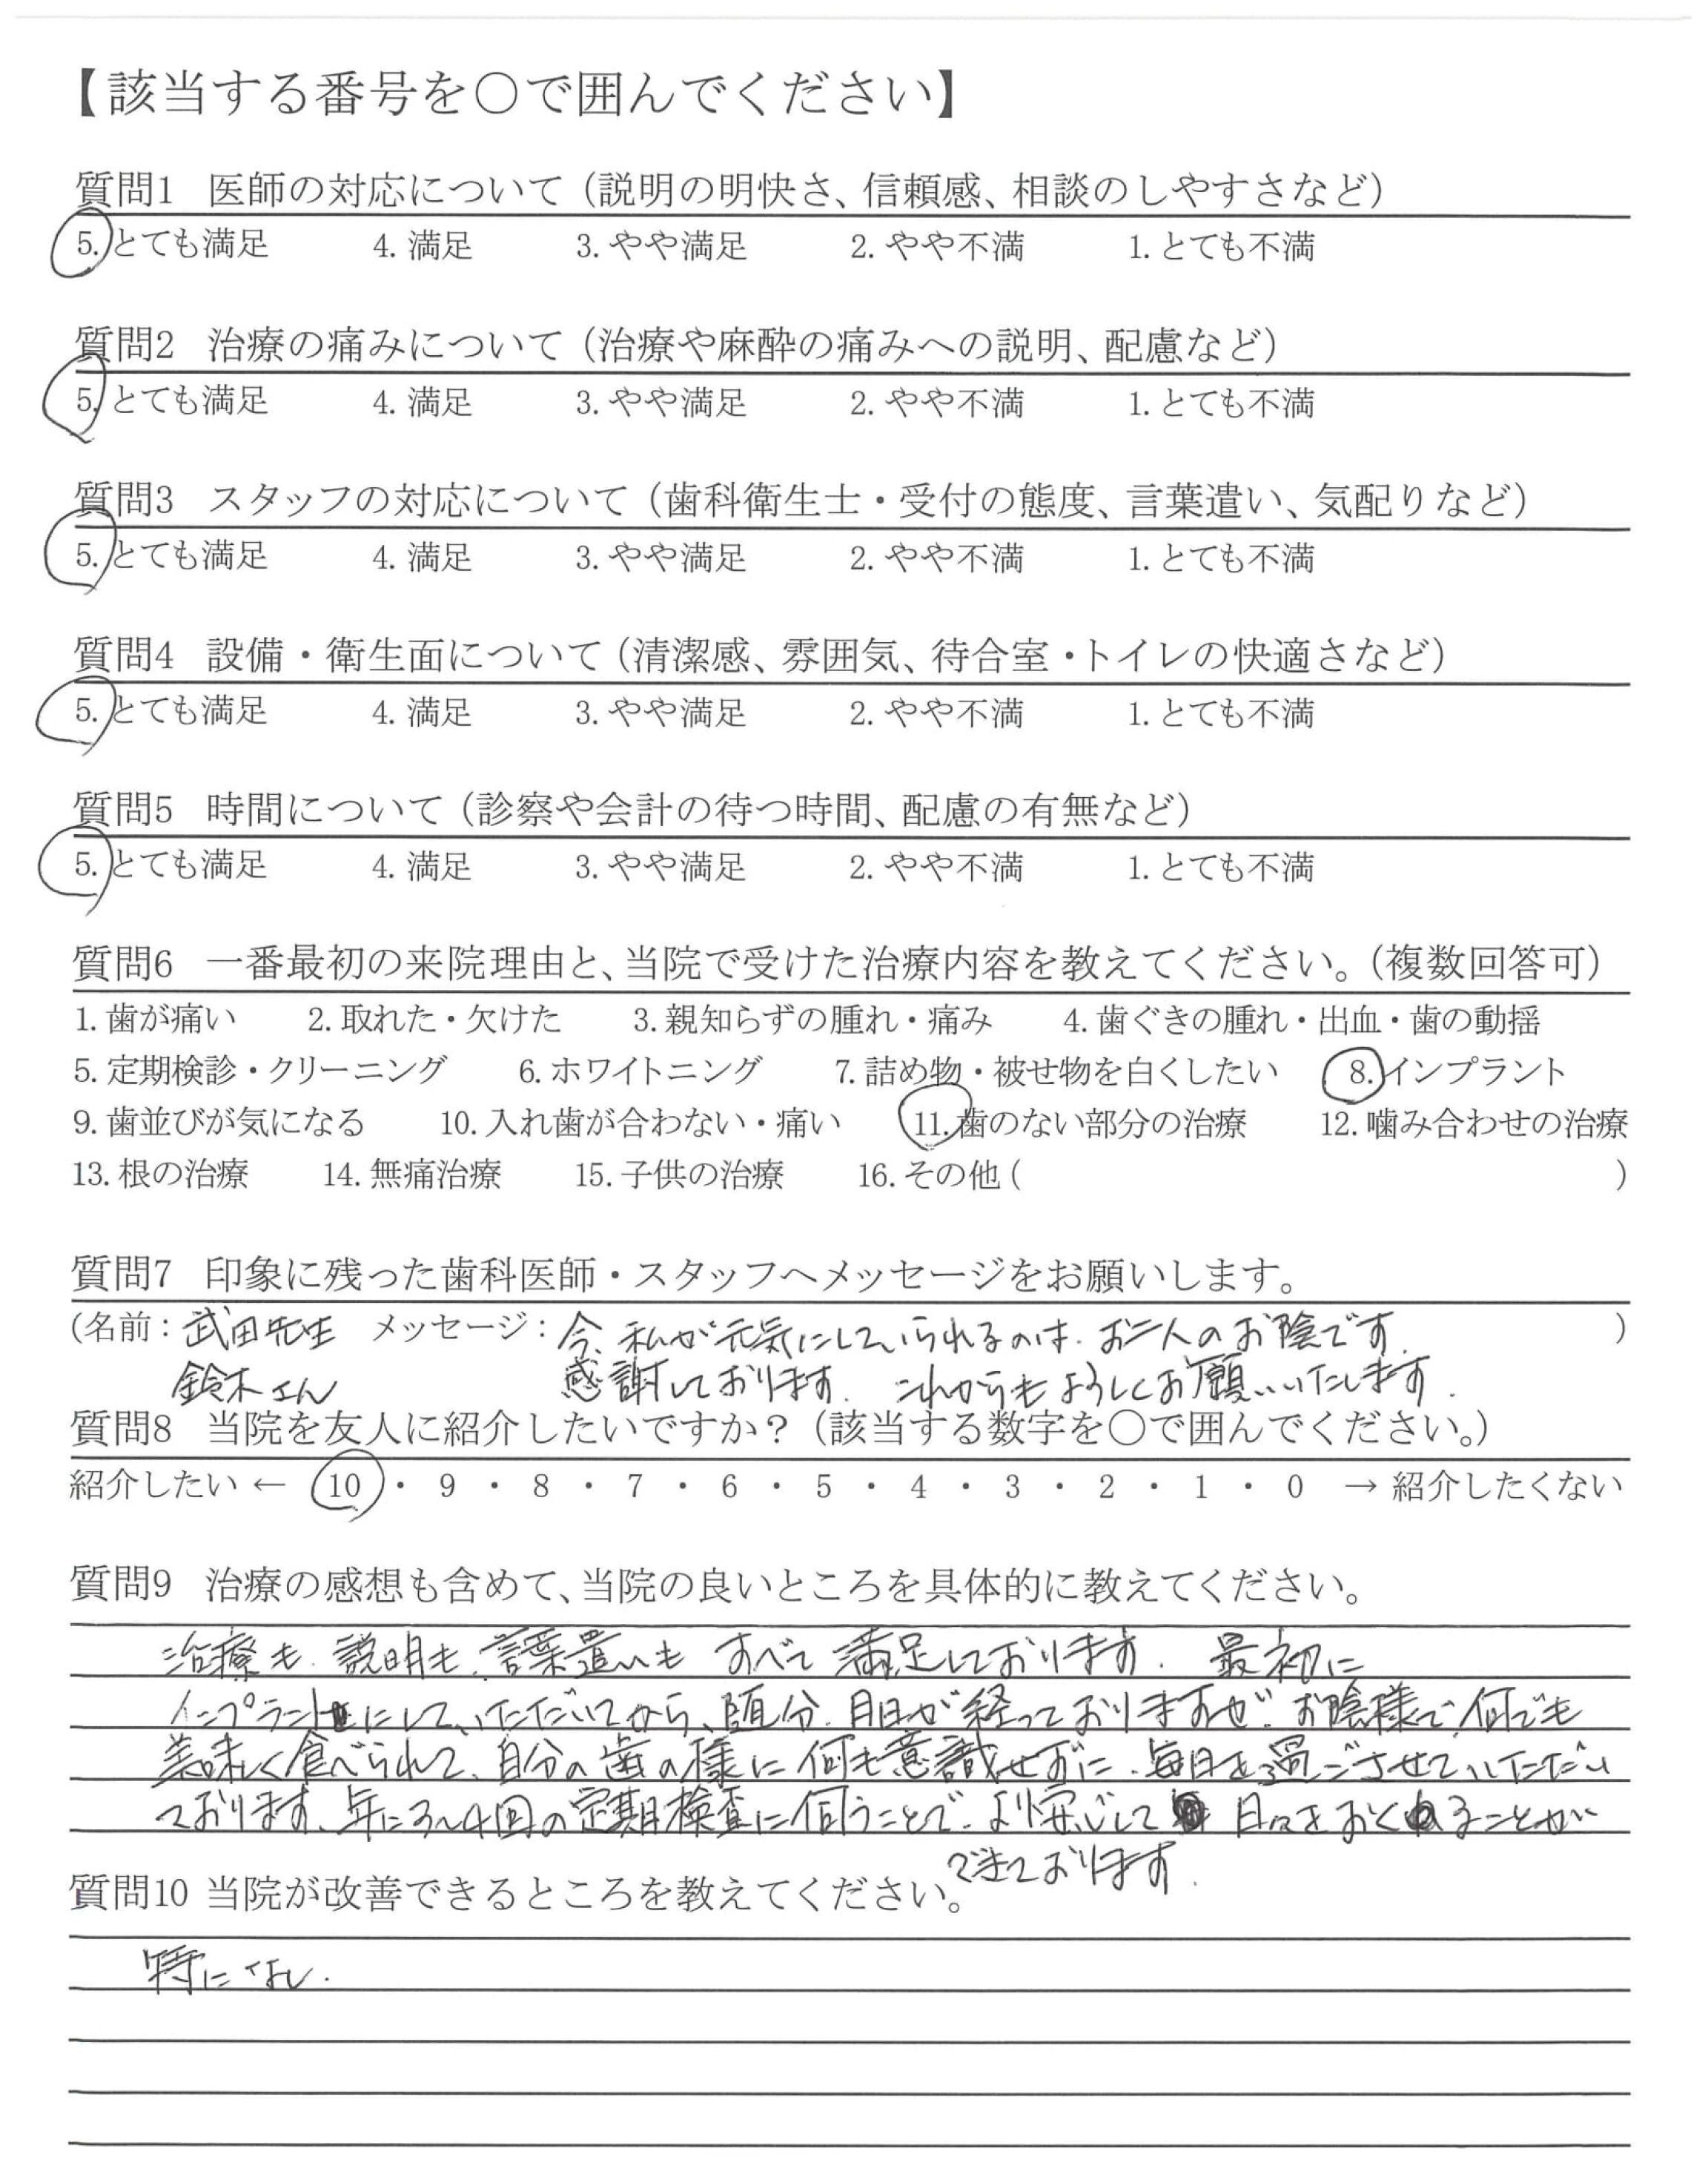 【該当する番号を〇で囲んでください】
質問1 医師の対応について（説明の明快さ、信頼感、相談のしやすさなど）
5. とても満足 4. 満足 3. やや満足 2. やや不満 1. とても不満
質問2 治療の痛みについて（治療や麻酔の痛みへの説明、配慮など）
5. とても満足 4. 満足 3. やや満足 2. やや不満 1. とても不満
質問3 スタッフの対応について（歯科衛生士・受付の態度、言葉遣い、気配りなど）
5. とても満足 4. 満足 3. やや満足 2. やや不満 1. とても不満
質問4 設備・衛生面について（清潔感、雰囲気、待合室・トイレの快適さなど）
5. とても満足 4. 満足 3. やや満足 2. やや不満 1. とても不満
質問5 時間について（診察や会計の待つ時間、配慮の有無など）
5. とても満足 4. 満足 3. やや満足 2. やや不満 1. とても不満
質問6 一番最初の来院理由と、当院で受けた治療内容を教えてください。（複数回答可）
1. 歯が痛い 2. 取れた・欠けた 3. 親知らずの腫れ・痛み 4. 歯ぐきの腫れ・出血・歯の動揺
5. 定期検診・クリーニング 6. ホワイトニング 7. 詰め物・被せ物を白くしたい 8. インプラント
9. 歯並びが気になる 10. 入れ歯が合わない・痛い 11. 歯のない部分の治療 12. 噛み合わせの治療
13. 根の治療 14. 無痛治療 15. 子供の治療 16. その他 ( )
質問7 印象に残った歯科医師・スタッフへメッセージをお願いします。
(名前：武田先生 メッセージ：今、私が元気にしていられるのは、お二人のお陰です。 )
鈴木さん 感謝しております。これからもよろしくお願いいたします。
質問8 当院を友人に紹介したいですか？（該当する数字を〇で囲んでください。）
紹介したい ← 10 ・ 9 ・ 8 ・ 7 ・ 6 ・ 5 ・ 4 ・ 3 ・ 2 ・ 1 ・ 0 → 紹介したくない
質問9 治療の感想も含めて、当院の良いところを具体的に教えてください。
治療も、説明も、言葉遣いも すべて 満足しております。最初に
インプラントにしていただいてから、随分、月日が経っておりますが、お陰様で、何でも
美味しく食べられて、自分の歯の様に何も意識せずに、毎日を過ごさせていただい
ております。年に3～4回の定期検査に伺うことで、より安心して 日々をおくることが
できております。
質問10 当院が改善できるところを教えてください。
特になし.